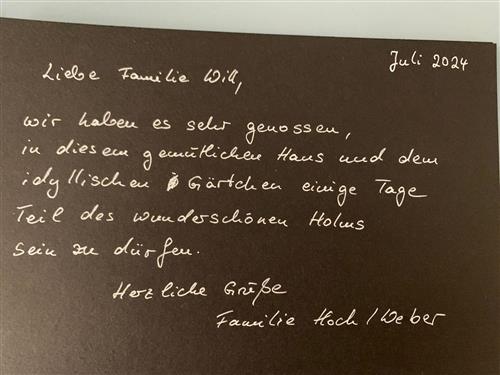 Juli 2024
Liebe Familie Will,
wir haben es sehr genossen,
in diesem gemütlichen Haus und dem
idyllischen Gärtchen einige Tage
Teil des wunderschönen Holms
sein zu dürfen.
Herzliche Grüße
Familie Hoch/Weber